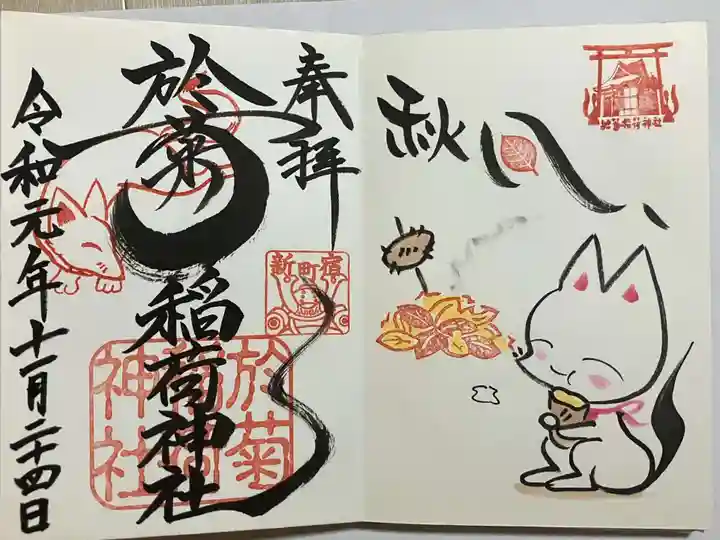 奉拝
於菊稲荷神社
令和元年十一月二十四日
新町宿
於菊
稲荷
神社
秋風
於菊稲荷神社